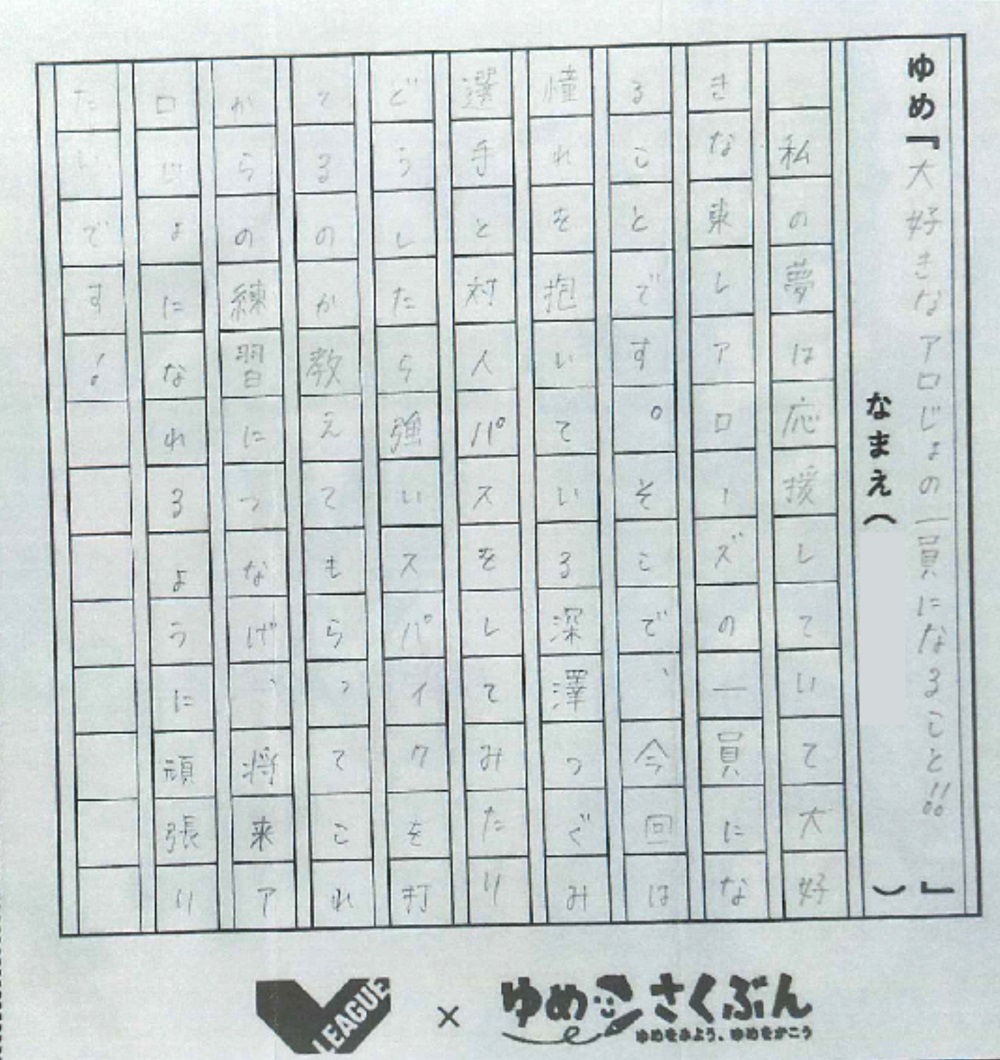 ゆめ『大好きなアロじょの一員になること!!』
なまえ（　）
私の夢は応援していて大好
きな東レアローズの一員にな
ることです。そこで、今回は
憧れを抱いている深澤つぐみ
選手と対人パスをしてみたり
どうしたら強いスパイクを打
てるのか教えてもらってこれ
からの練習につなげ、将来ア
ロじょになれるように頑張り
たいです!
V LEAGUE × ゆめさくぶん
ゆめをみよう、ゆめをかこう